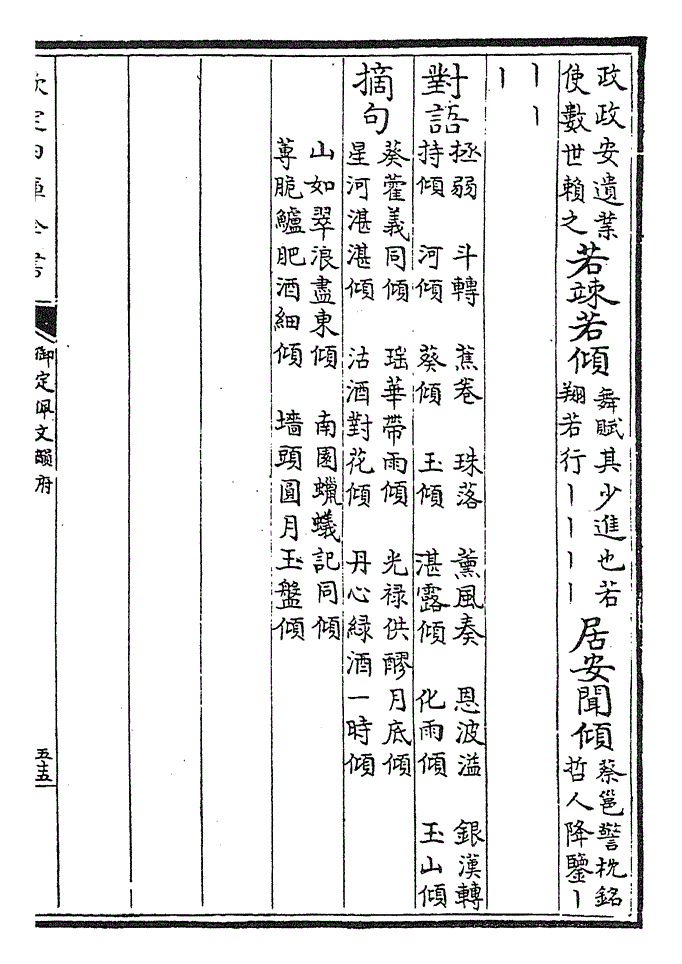 政政安遺業
使數世賴之
若竦若傾
舞賦其少進也若
翔若行丨丨丨丨
居安聞傾
蔡邕警枕銘
哲人降鑒丨
丨丨
丨
對語
拯弱 斗轉 蕉卷 珠落 薰風奏 恩波溢 銀漢轉
持傾 河傾 葵傾 玉傾 湛露傾 化雨傾 玉山傾
摘句
葵藿義同傾 瑶華帶雨傾 光禄供醪月底傾
星河湛湛傾 沽酒對花傾 丹心緑酒一時傾
山如翠浪盡東傾 南園蠟蟻記同傾
蓴脆鱸肥酒細傾 墻頭圓月玉盤傾
欽定四庫全書
御定佩文韻府
五十五